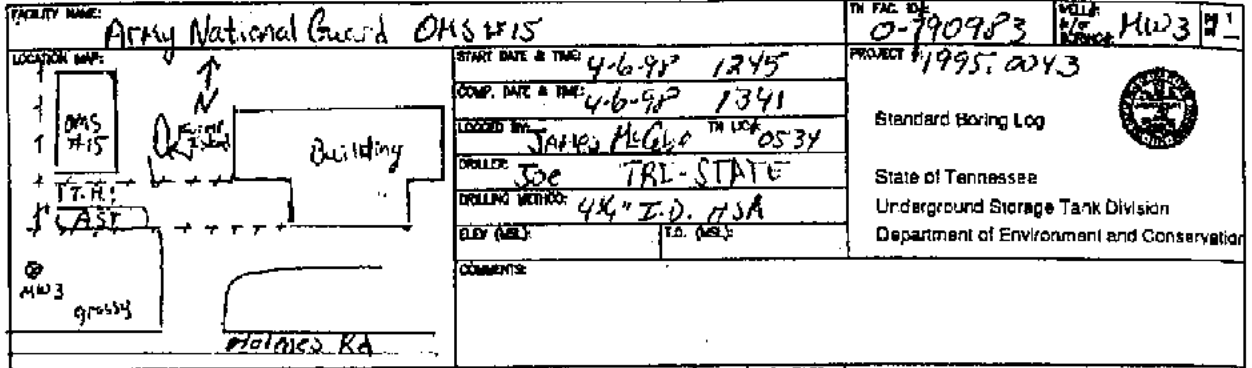 FACILITY NAME: Army National Guard OMS #15
TN FAC. ID#: 0-790983
WELL# &/or BORING#: MW3
PG 1 OF
LOCATION MAP:
N
OMS #15
Building
AST
MW3
grassy
Holmes Rd
START DATE & TIME: 4-6-98 1245
COMP. DATE & TIME: 4-6-98 1341
LOGGED BY: James TN LIC# 0534
DRILLER: Joe TRI-STATE
DRILLING METHOD: 4¼" I.D. HSA
ELEV (MSL): T.D. (MSL):
COMMENTS:
PROJECT #: 1995.0043
Standard Boring Log
State of Tennessee
Underground Storage Tank Division
Department of Environment and Conservation